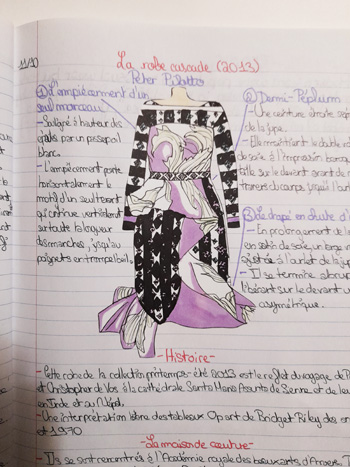 11/10
La robe cascade (2013)
Peter Pilotto
① L'empiècement d'un
seul morceau
- Souligné à hauteur des
par un passepoil
blanc.
- L'empiècement porte
horizontalement le
motif d'un seul tenant
qui continue verticalement
sur toute la longueur
des manches, jusqu'au
poignets en trompe l'oeil.
② Demi-Péplum
- Une ceinture étroite
de la jupe.
- Elle maintient le double
de soie à l'impression
taille sur le devant avant de
travers du corps jusqu'à l'
③ Le drapé en chute d'
- En prolongement de
en satin de soie, un large
ajustée à l'ourlet de la jup
- Il se termine abrup
libérant sur le devant u
asymétrique.
- Histoire -
- Cette robe de la collection printemps-été 2013 est le reflet du voyage de P
et Christopher de Vos à la cathédrale Santa Maria Assunta de Sienne et de leu
en Inde et au Népal.
- Une interprétation libre des tableaux Op art de Bridget Riley des an
et 1970.
- La maison de couture -
- Ils se sont rencontrés à l'Académie royale des beaux arts d'Anvers.